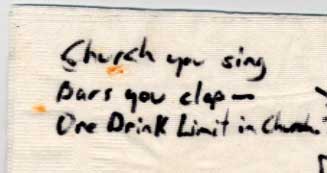 Church you sing
Bars you clap —
One Drink Limit in Church.